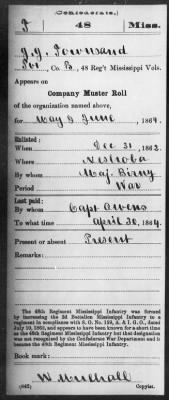 (Confederate.)
T 48 Miss.
J. J. Townsand
Co. B, 48 Reg't Mississippi Vols.
Appears on
Company Muster Roll
of the organization named above,
for May & June, 1864.
Enlisted:
When Dec 31, 1862.
Where Neshoba
By whom Maj. Birny
Period War
Last paid:
By whom Capt Owens
To what time April 30, 1864.
Present or absent Present
Remarks:
The 48th Regiment Mississippi Infantry was formed by
increasing the 2d Battalion Mississippi Infantry to a
regiment in compliance with S. O. No. 159, A. I. G. O., dated
as the 48th Regiment Mississippi Infantry but that designation
was not recognized by the Confederate War Department and it became
the 48th Regiment Mississippi Infantry.
Book mark:
(642) Copyist.